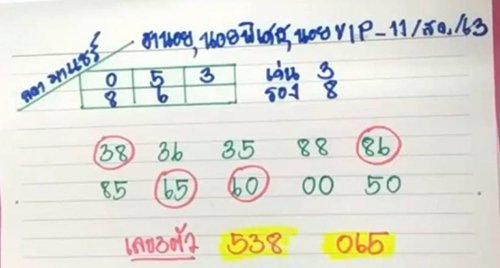 ฮานอย, นอยพิเศษ, นอยVIP-11/สค./63
0 5 3
8 6
เด่น 3
รอง 8
38 36 35 88 86
85 65 60 00 50
เลข3ตัว 538 065